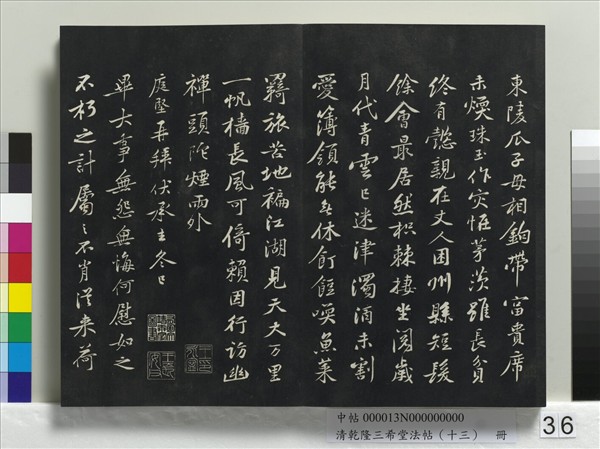 東陵瓜子母相鉤帶富貴席
未煖珠玉作災怪茅茨雖長貧
終有懿親在丈人困州縣短髮
餘會最居然枳棘棲坐閱歲
月代青雲已迷津濁酒未割
愛簿領能休飣餖喚魚菜
羈旅苦地褊江湖見天大万里
一帆檣長風可倚賴因行訪幽
禪頭陀煙雨外
庭堅再拜伏承去冬已
畢大事無怨無悔何慰如之
不朽之計屬々不肖從來荷
中帖 000013N000000000
清乾隆三希堂法帖（十三） 冊
36